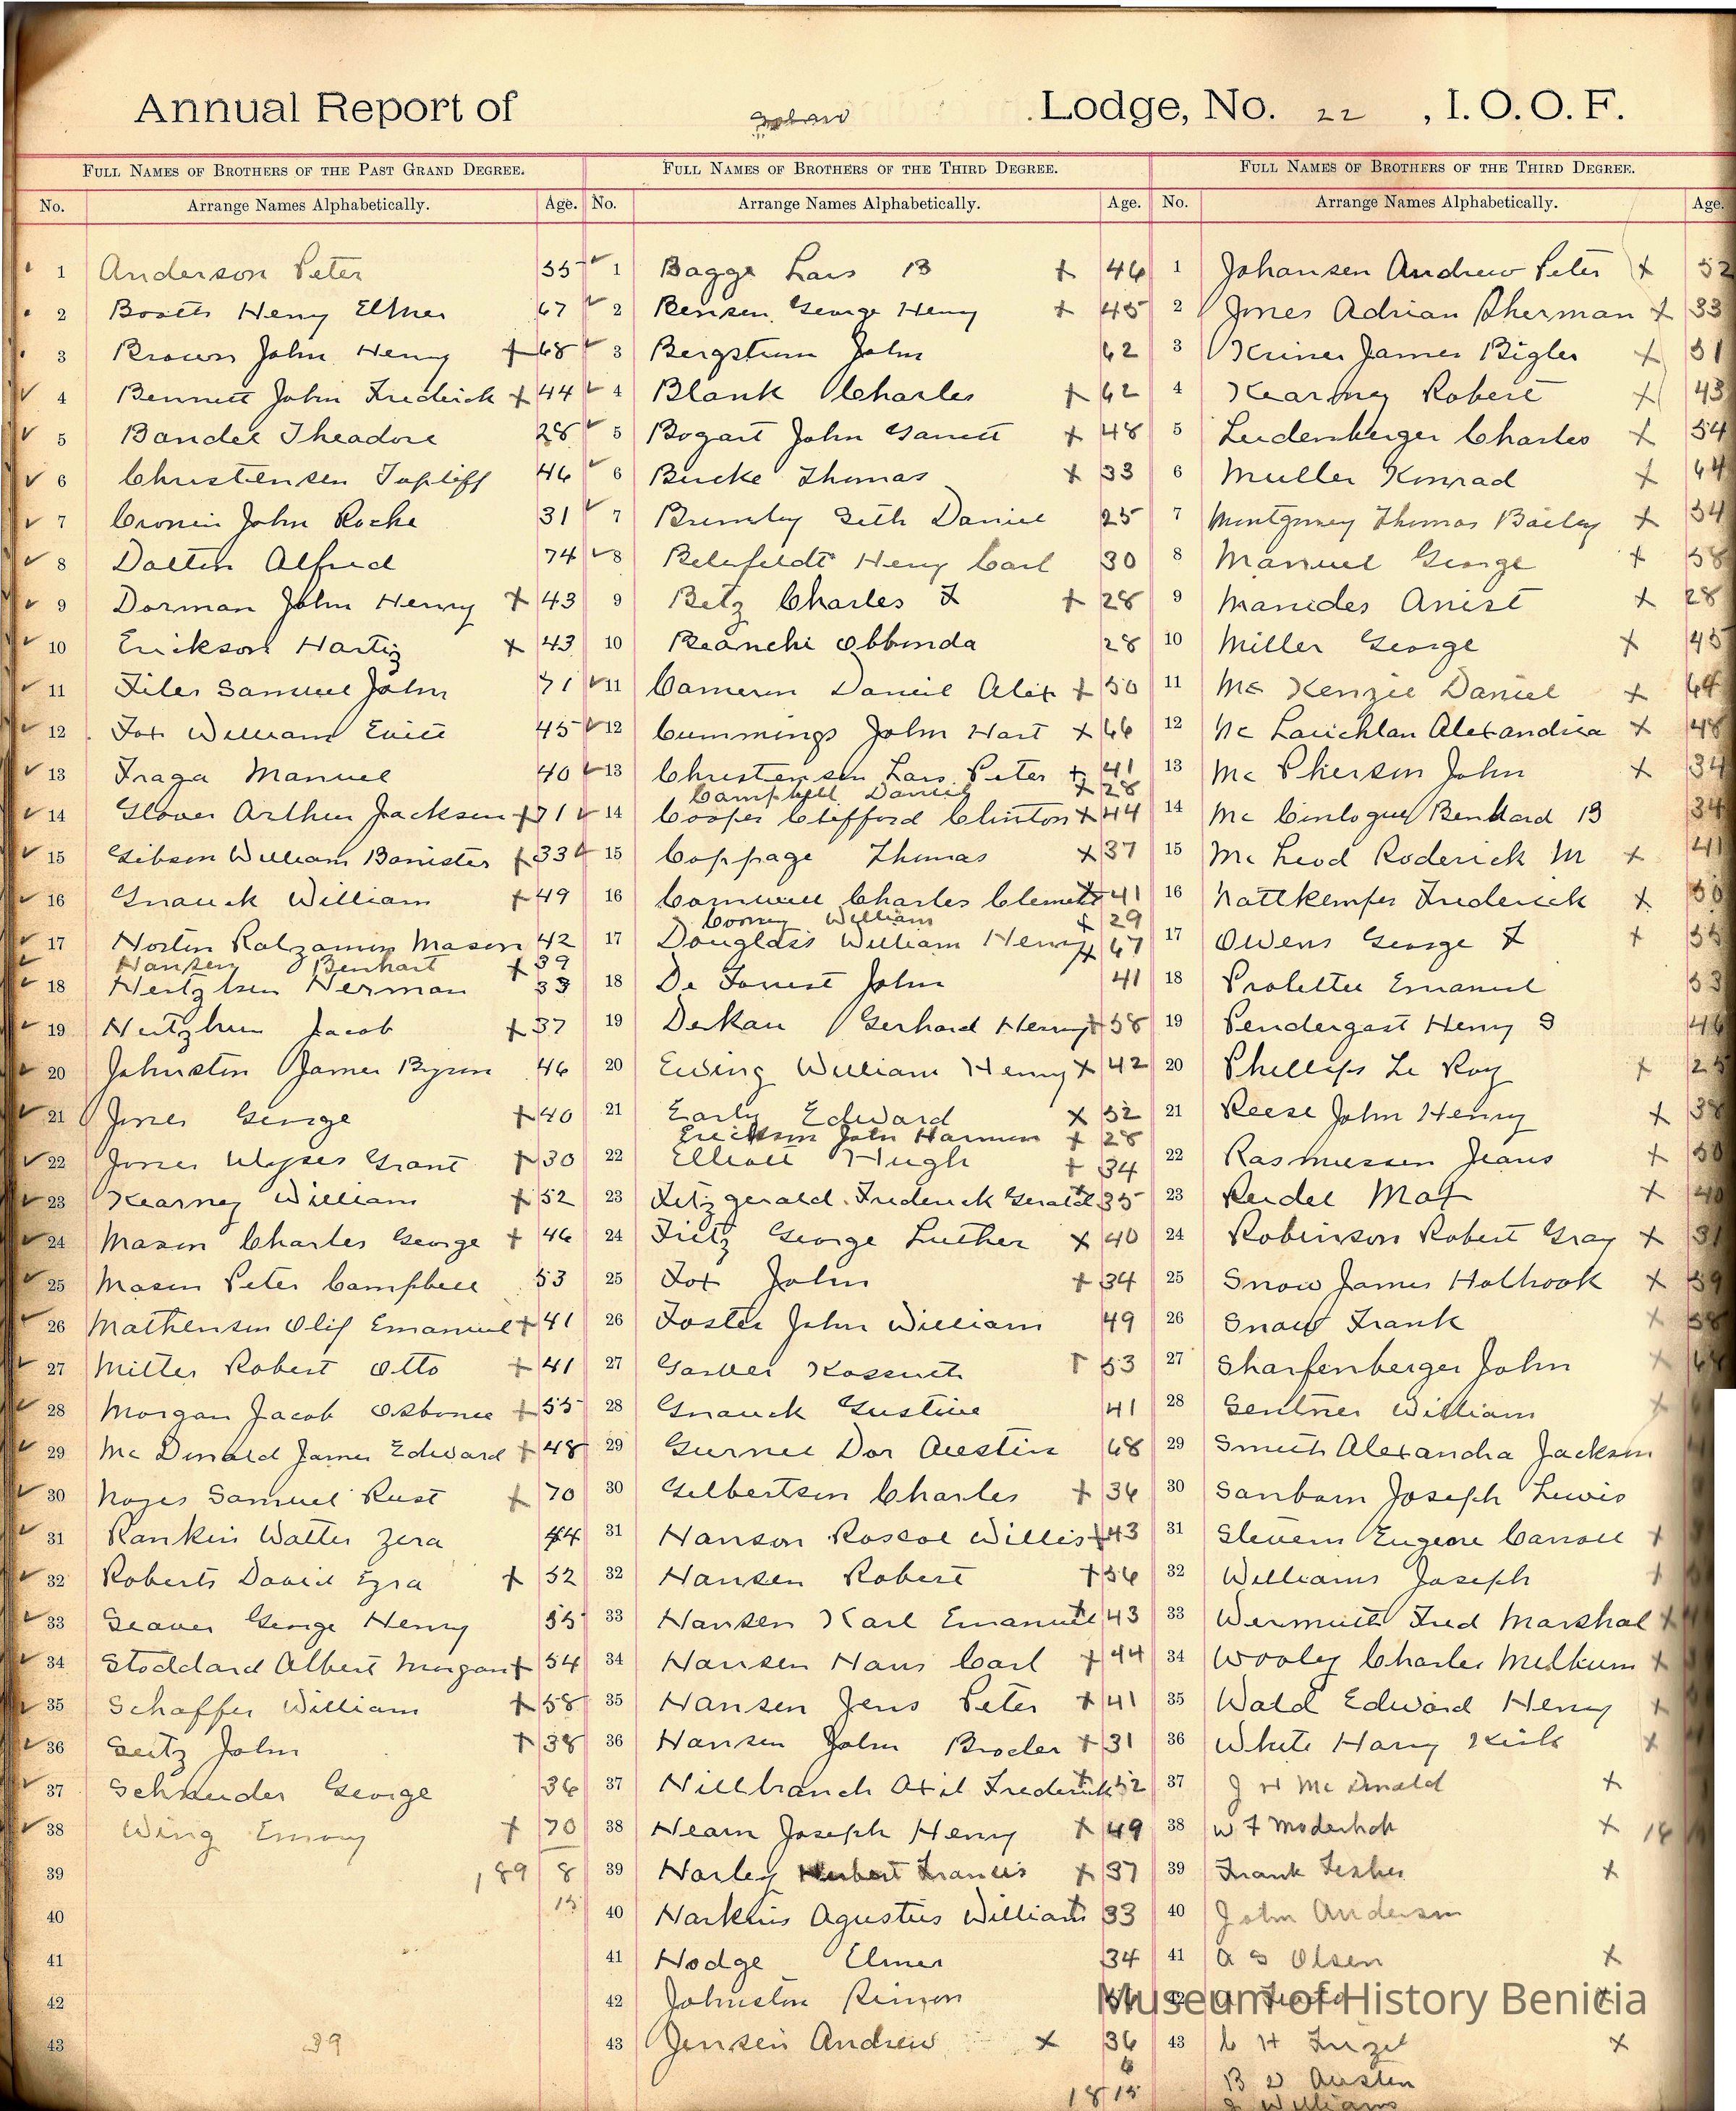 Annual Report of Lodge, No. 22, I.O.O.F.
Full Names of Brothers of the Past Grand Degree.
No. Arrange Names Alphabetically. Age.
1 Anderson Peter 55
2 Booth Henry Elmer 67
3 Brown John Henry + 68
4 Bennett John Fredrick + 44
5 Bandel Theadore 28
6 Christensen Topliff 46
7 Cronin John Roche 31
8 Dalten Alfred 74
9 Dorman John Henry + 43
10 Erickson Hartig + 43
11 Files Samuel John 71
12 Fox William 45
13 Fraga Manuel 40
14 Glover Arthur Jackson + 71
15 Gibson William Banister + 33
16 Gnauck William + 49
17 Norton Mason 42
Hansen Benhart + 39
18 Herman 33
19 Jacob + 37
20 Johnston James Byron 46
21 Jones George + 40
22 Jones Ulyses Grant + 30
23 Kearney William + 52
24 Mason Charles George + 46
25 Mason Peter Campbell 53
26 Mathenson Olif Emanuel + 41
27 Mitter Robert Otto + 41
28 Morgan Jacob Osborne + 55
29 Mc Donald James Edward + 48
30 Noyes Samuel Rust + 70
31 Rankin Walter Zera 44
32 Roberts David Ezra + 52
33 Seaver George Henry 55
34 Stoddard Albert Morgan + 54
35 Schaffer William + 58
36 Seitz John + 38
37 Schnuder George 36
38 Wing Emory + 70
39 189 8
40 15
41
42
43 39
Full Names of Brothers of the Third Degree.
No. Arrange Names Alphabetically. Age.
1 Bagge Lars B + 46
2 Bensen George Henry + 45
3 Bergstrum John 62
4 Blank Charles + 62
5 Bogart John Garrett + 48
6 Burke Thomas + 33
7 Brumby Seth Daniel 25
8 Belefeldt Henry Carl 30
9 Betz Charles F + 28
10 Beanchi Obbonda 28
11 Cameron Daniel Alex + 50
12 Cummings John Hart + 66
13 Christensen Lars Peter + 41
Campbell Daniel + 28
14 Cooper Clifford Clinton + 44
15 Coppage Thomas + 37
16 Cornwell Charles Clemett + 41
Cooney William + 29
17 Douglass William Henry + 67
18 De Forrest John 41
19 Dekan Gerhard Henry + 58
20 Ewing William Henry + 42
21 Early Edward + 52
Erickson John Harmon + 28
22 Elliott Hugh + 34
23 Fitzgerald Frederick Gerald + 35
24 Fritz George Luther + 40
25 Fox John + 34
26 Foster John William 49
27 Garver Kossuth + 53
28 Gnauck Gustive 41
29 Gurnee Dor Austin 68
30 Gilbertson Charles + 36
31 Hanson Roscoe Willis + 43
32 Hansen Robert + 56
33 Hansen Karl Emanuel + 43
34 Hansen Hans Carl + 44
35 Hansen Jens Peter + 41
36 Hansen John Broder + 31
37 Hillbranch Axil Frederick + 52
38 Hearn Joseph Henry + 49
39 Harley Herbert Francis + 37
40 Harkins Agustus William + 33
41 Hodge Elmer 34
42 Johnston Rimon
43 Jensen Andrew + 36
6
1815
Full Names of Brothers of the Third Degree.
No. Arrange Names Alphabetically. Age.
1 Johansen Andrew Peter + 52
2 Jones Adrian Sherman + 33
3 Kriner James Bigler + 51
4 Kearney Robert + 43
5 Leidenberger Charles + 54
6 Muller Konrad + 64
7 Montgomery Thomas Bailey + 34
8 Manuel George + 58
9 Manides Anist + 28
10 Miller George + 45
11 Mc Kenzie Daniel + 64
12 Mc Lauchlan Alexandria + 48
13 Mc Pherson John + 34
14 Mc Benhard B 34
15 Mc Leod Roderick M + 41
16 Nattkemper Frederick + 50
17 Owens George F + 55
18 Prolettie Emanuel 53
19 Pendergast Henry S 46
20 Phillips Le Roy + 25
21 Reese John Henry + 38
22 Rasmussen Jeans + 50
23 Reidel Max + 40
24 Robinson Robert Gray + 31
25 Snow James Holbrook + 59
26 Snow Frank + 58
27 Sharfenberger John +
28 Sentner William +
29 Smith Alexandra Jackson
30 Sanborn Joseph Lewis
31 Stevens Eugene Carroll +
32 Williams Joseph +
33 Wermuth Fred Marshal +
34 Wooley Charles +
35 Wald Edward Henry +
36 White Harry Kirk +
37 J H Mc Donald +
38 W F +
39 Frank +
40 John Anderson
41 A S Olsen +
42
43 C H Frizel +
B D Austen
Williams
Museum of History Benicia